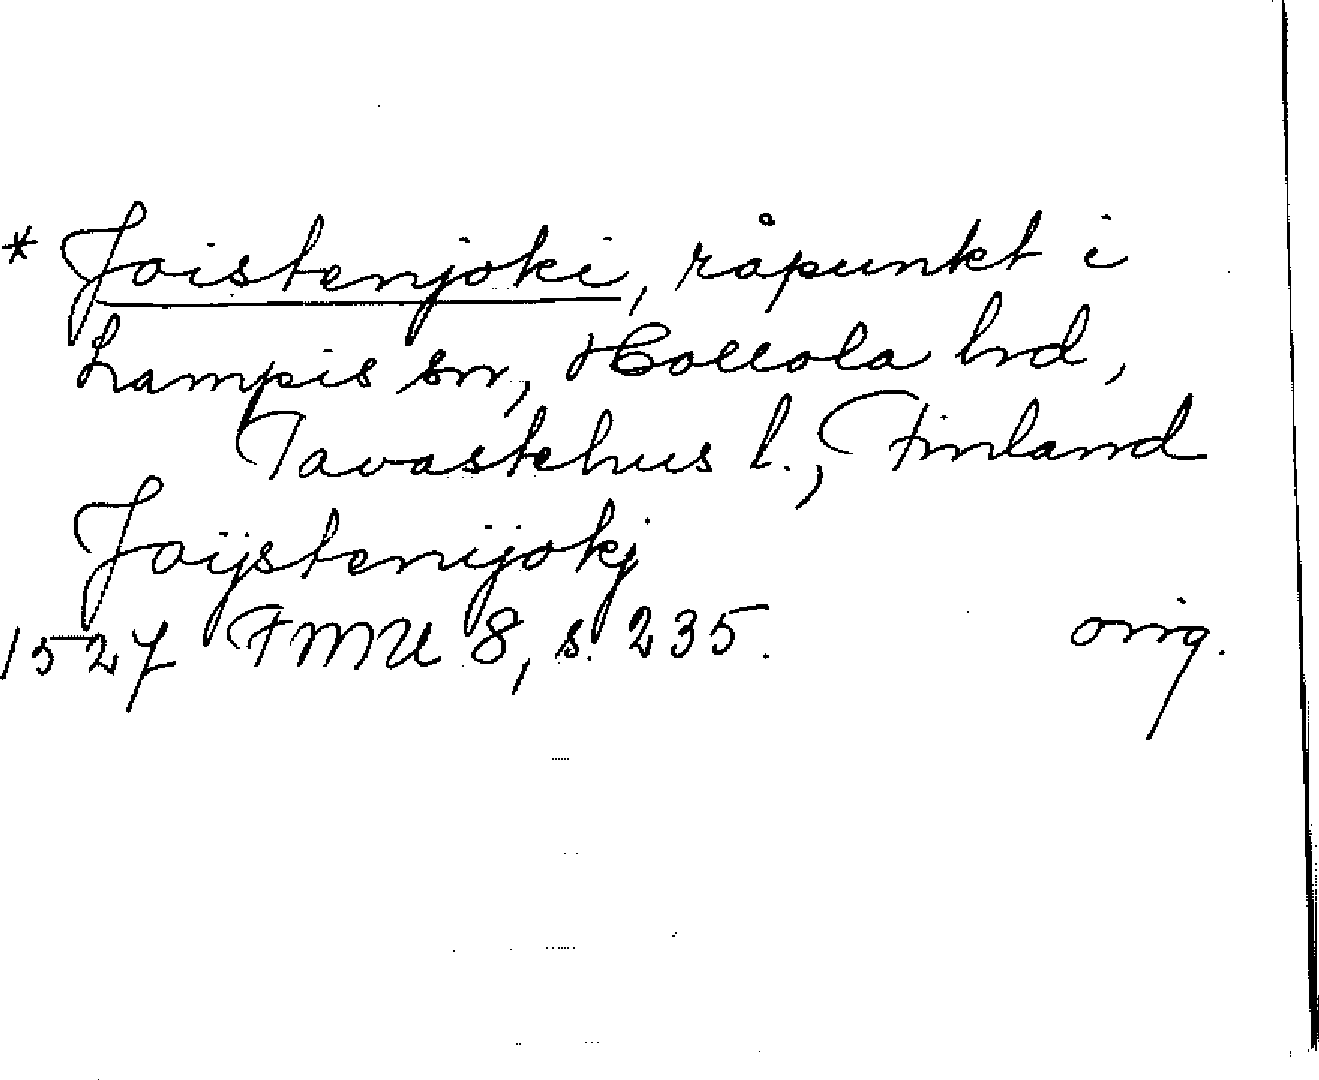 * Joistenjoki, råpunkt i
Lampis sn, Hollola hd,
Tavastehus l., Finland
Joijstenijokj
1527 FMU 8, s. 235. orig.